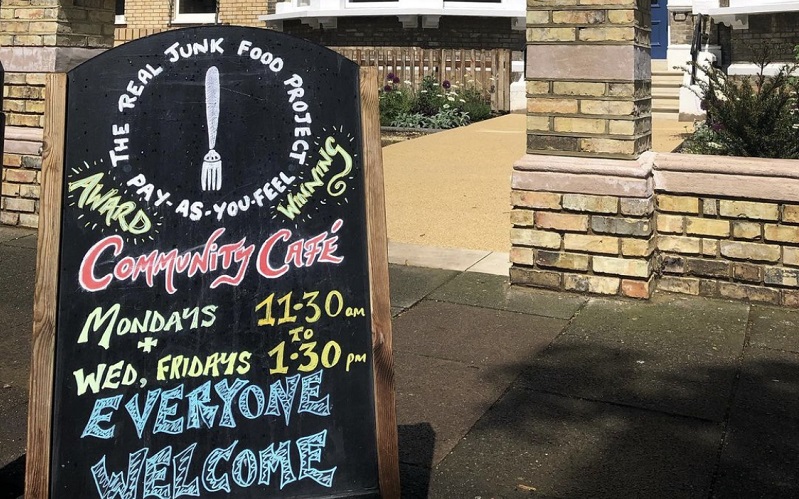 THE REAL JUNK FOOD PROJECT
PAY-AS-YOU-FEEL
AWARD
WINNING
COMMUNITY CAFÉ
MONDAYS 11-30 am
+ TO
WED, FRIDAYS 1-30 pm
EVERYONE
WELCOME